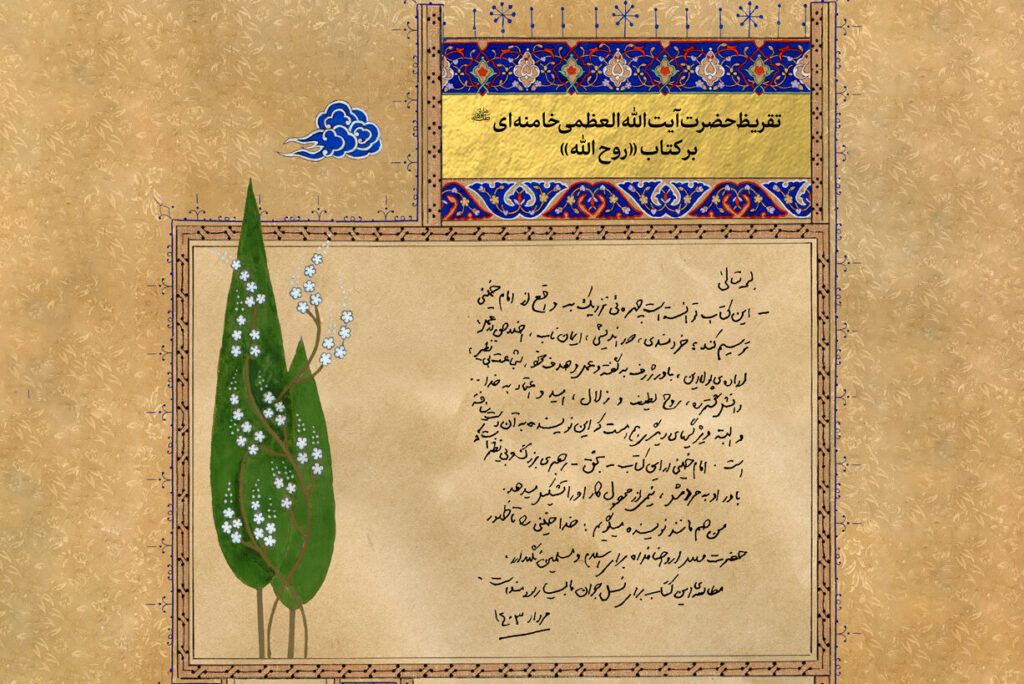 تقریظ حضرت آیت الله العظمی خامنه‌ای
بر کتاب «روح الله»
بسمه تعالی
- این کتاب توانسته است چهره‌ئی نزدیک به واقع از امام خمینی
ترسیم کند؛ خردمندی، دوراندیشی، ایمان ناب، اخلاص در عمل،
اراده‌ی پولادین، باور ژرف به گفته و عمل و هدف خود، شجاعت بی نظیر،
دانش گسترده، روح لطیف و زلال، امید و اعتماد به خدا ..
و البته ویژگیهای بیشتری هم هست که این نویسنده به آن دست نیافته
است. امام خمینی در این کتاب - بحق - رهبری بزرگ و بی نظیر است و
باور او به مردمش، نیمی از محصول کار او را تشکیل میدهد.
من هم مانند نویسنده میگویم: خدا خمینی را تا ظهور
حضرت مهدی ارواحنا فداه برای اسلام و مسلمین نگهدارد.
مطالعه‌ی این کتاب برای نسل جوان ما بسیار سودمند است.
مرداد ۱۴۰۳